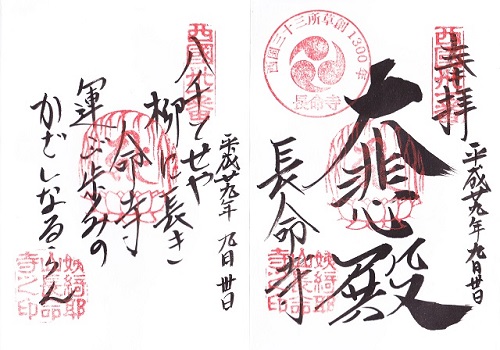 西國卅一番
奉拝
平成廿九年 九月卅日
西国三十三所草創1300年
長命寺
大悲殿
長命寺
姨綺耶
山長命
寺之印
西國卅一番
平成廿九年 九月卅日
八千とせや
柳に長き
命寺
運ぶ歩みの
かざしなるらん
姨綺耶
山長命
寺之印